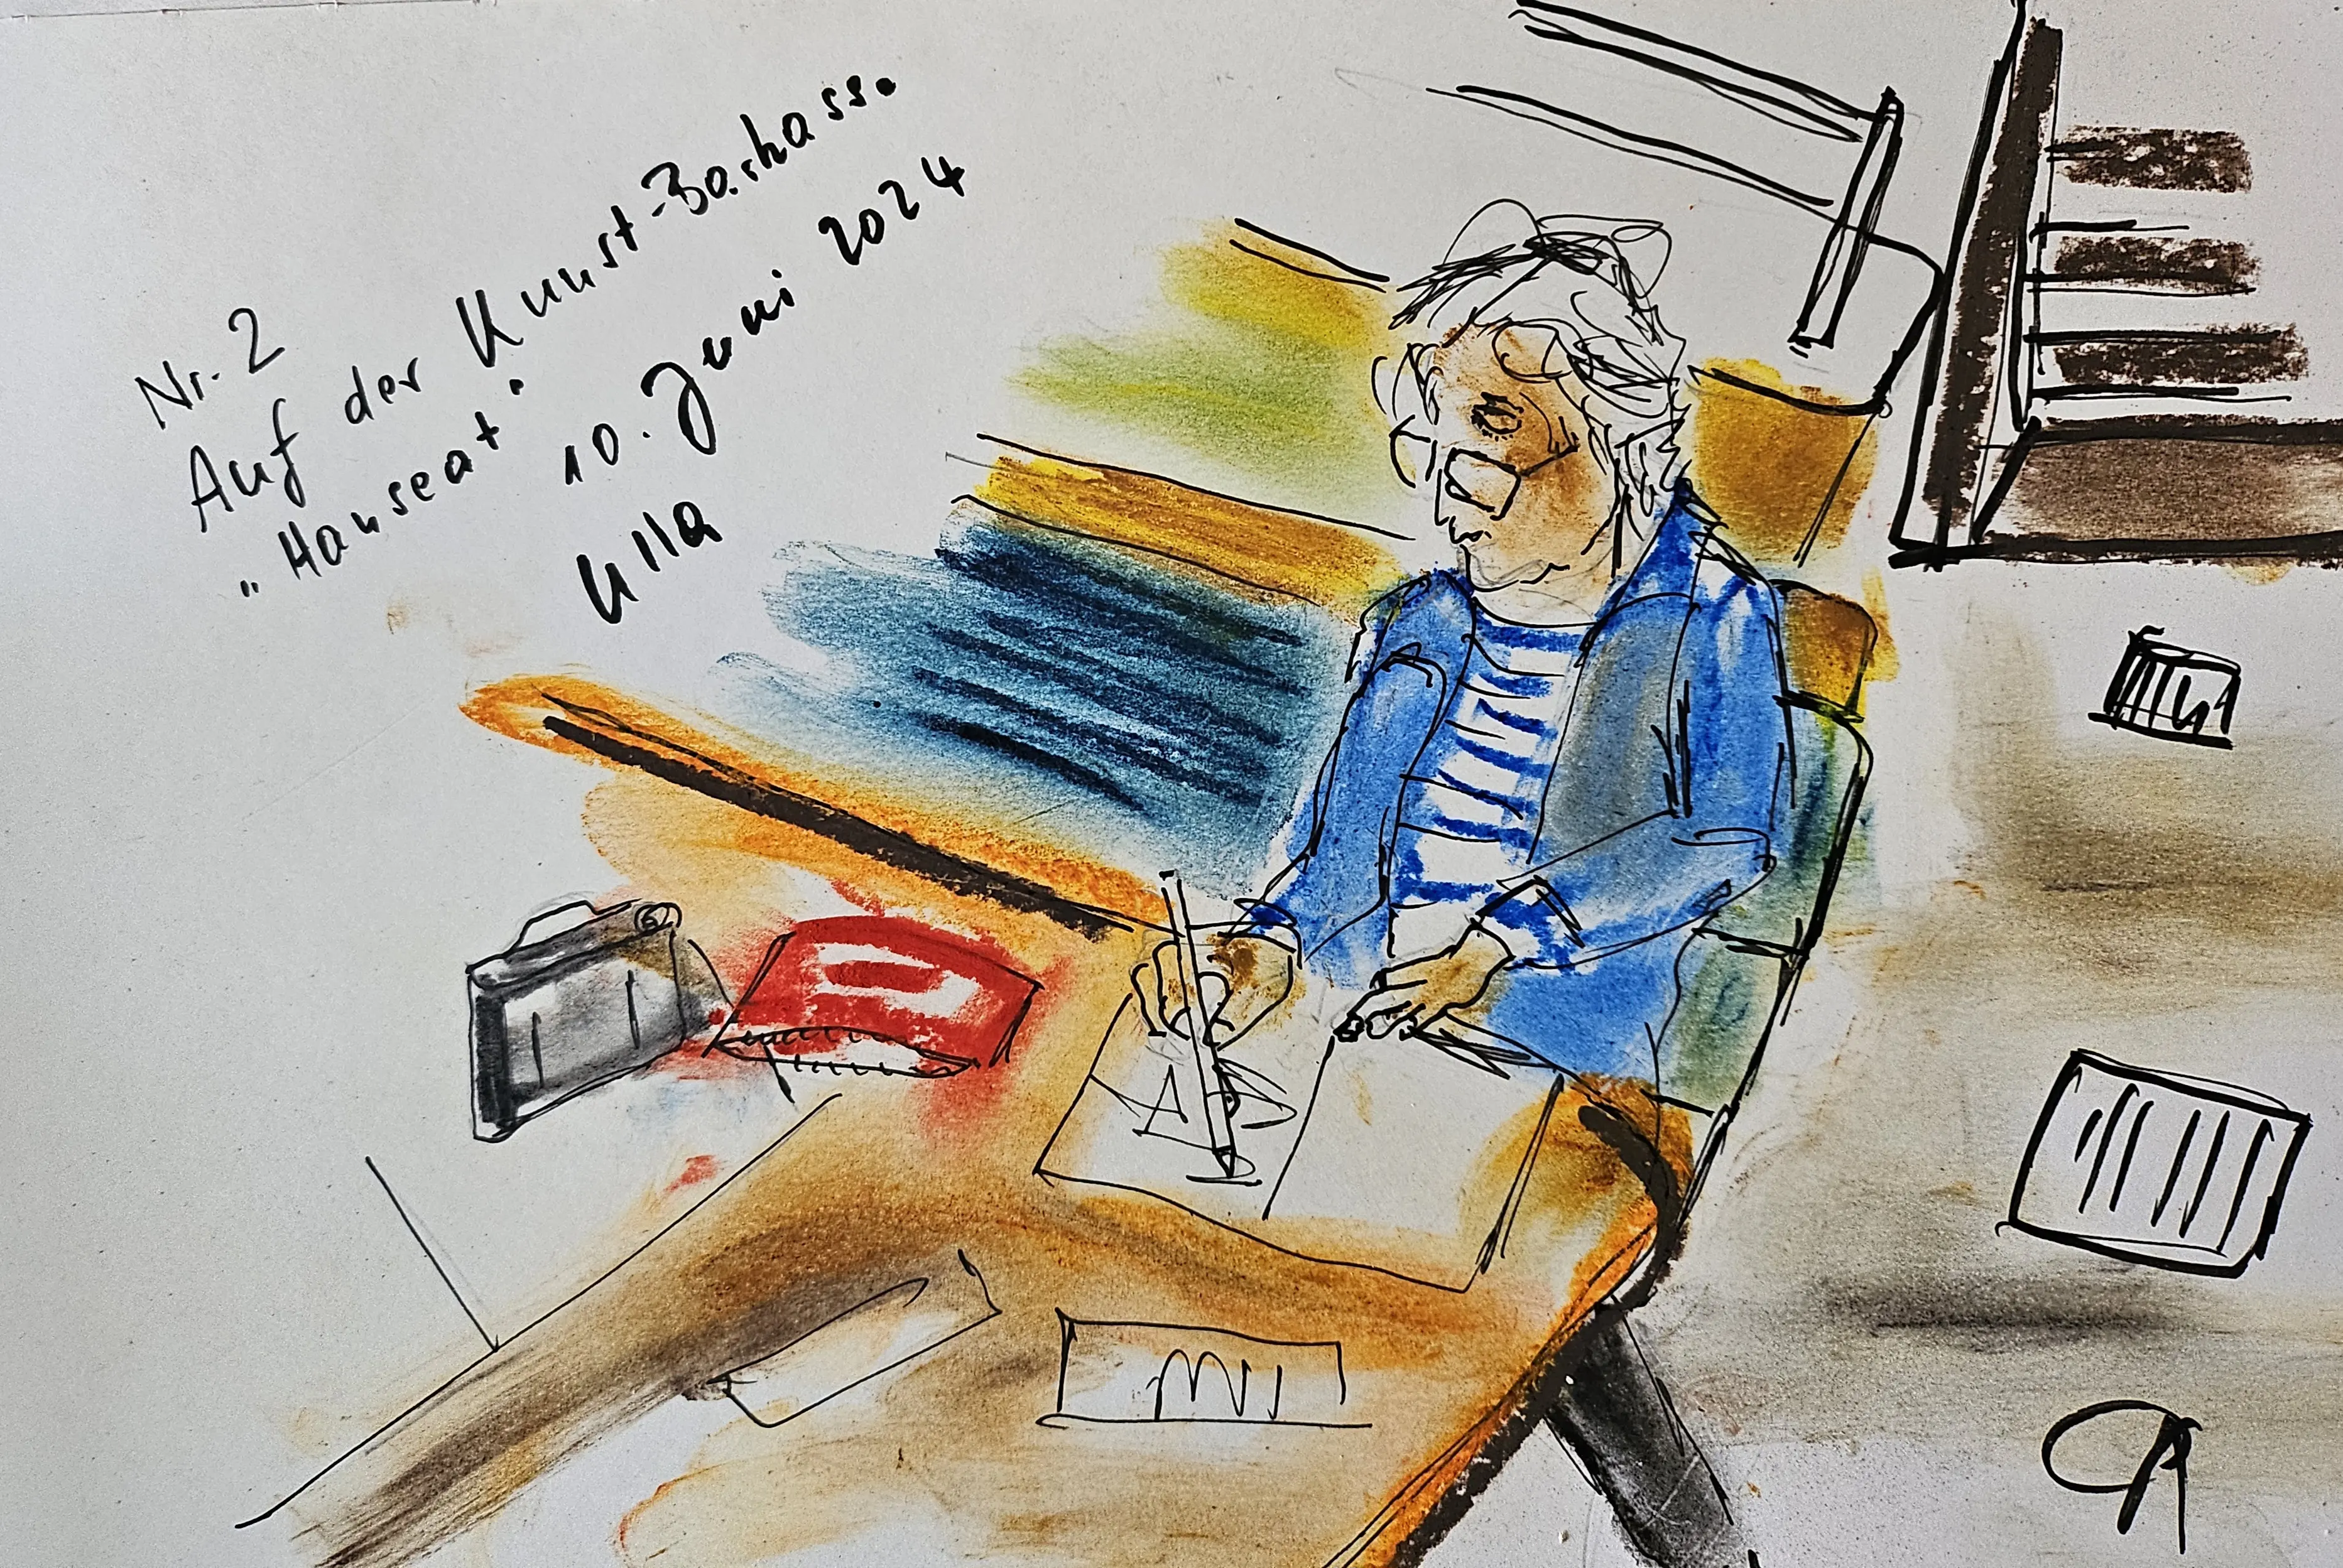 Nr. 2
Auf der Kunst-Barkass.
"Hanseat".
10. Juni 2024
Ulla